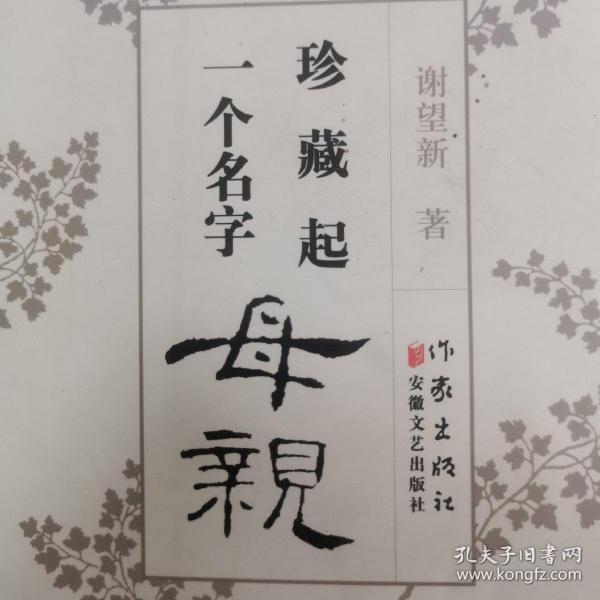 谢望新 著
珍藏起
一个名字
母親
作家出版社
安徽文艺出版社
孔夫子旧书网
www.kongfz.com